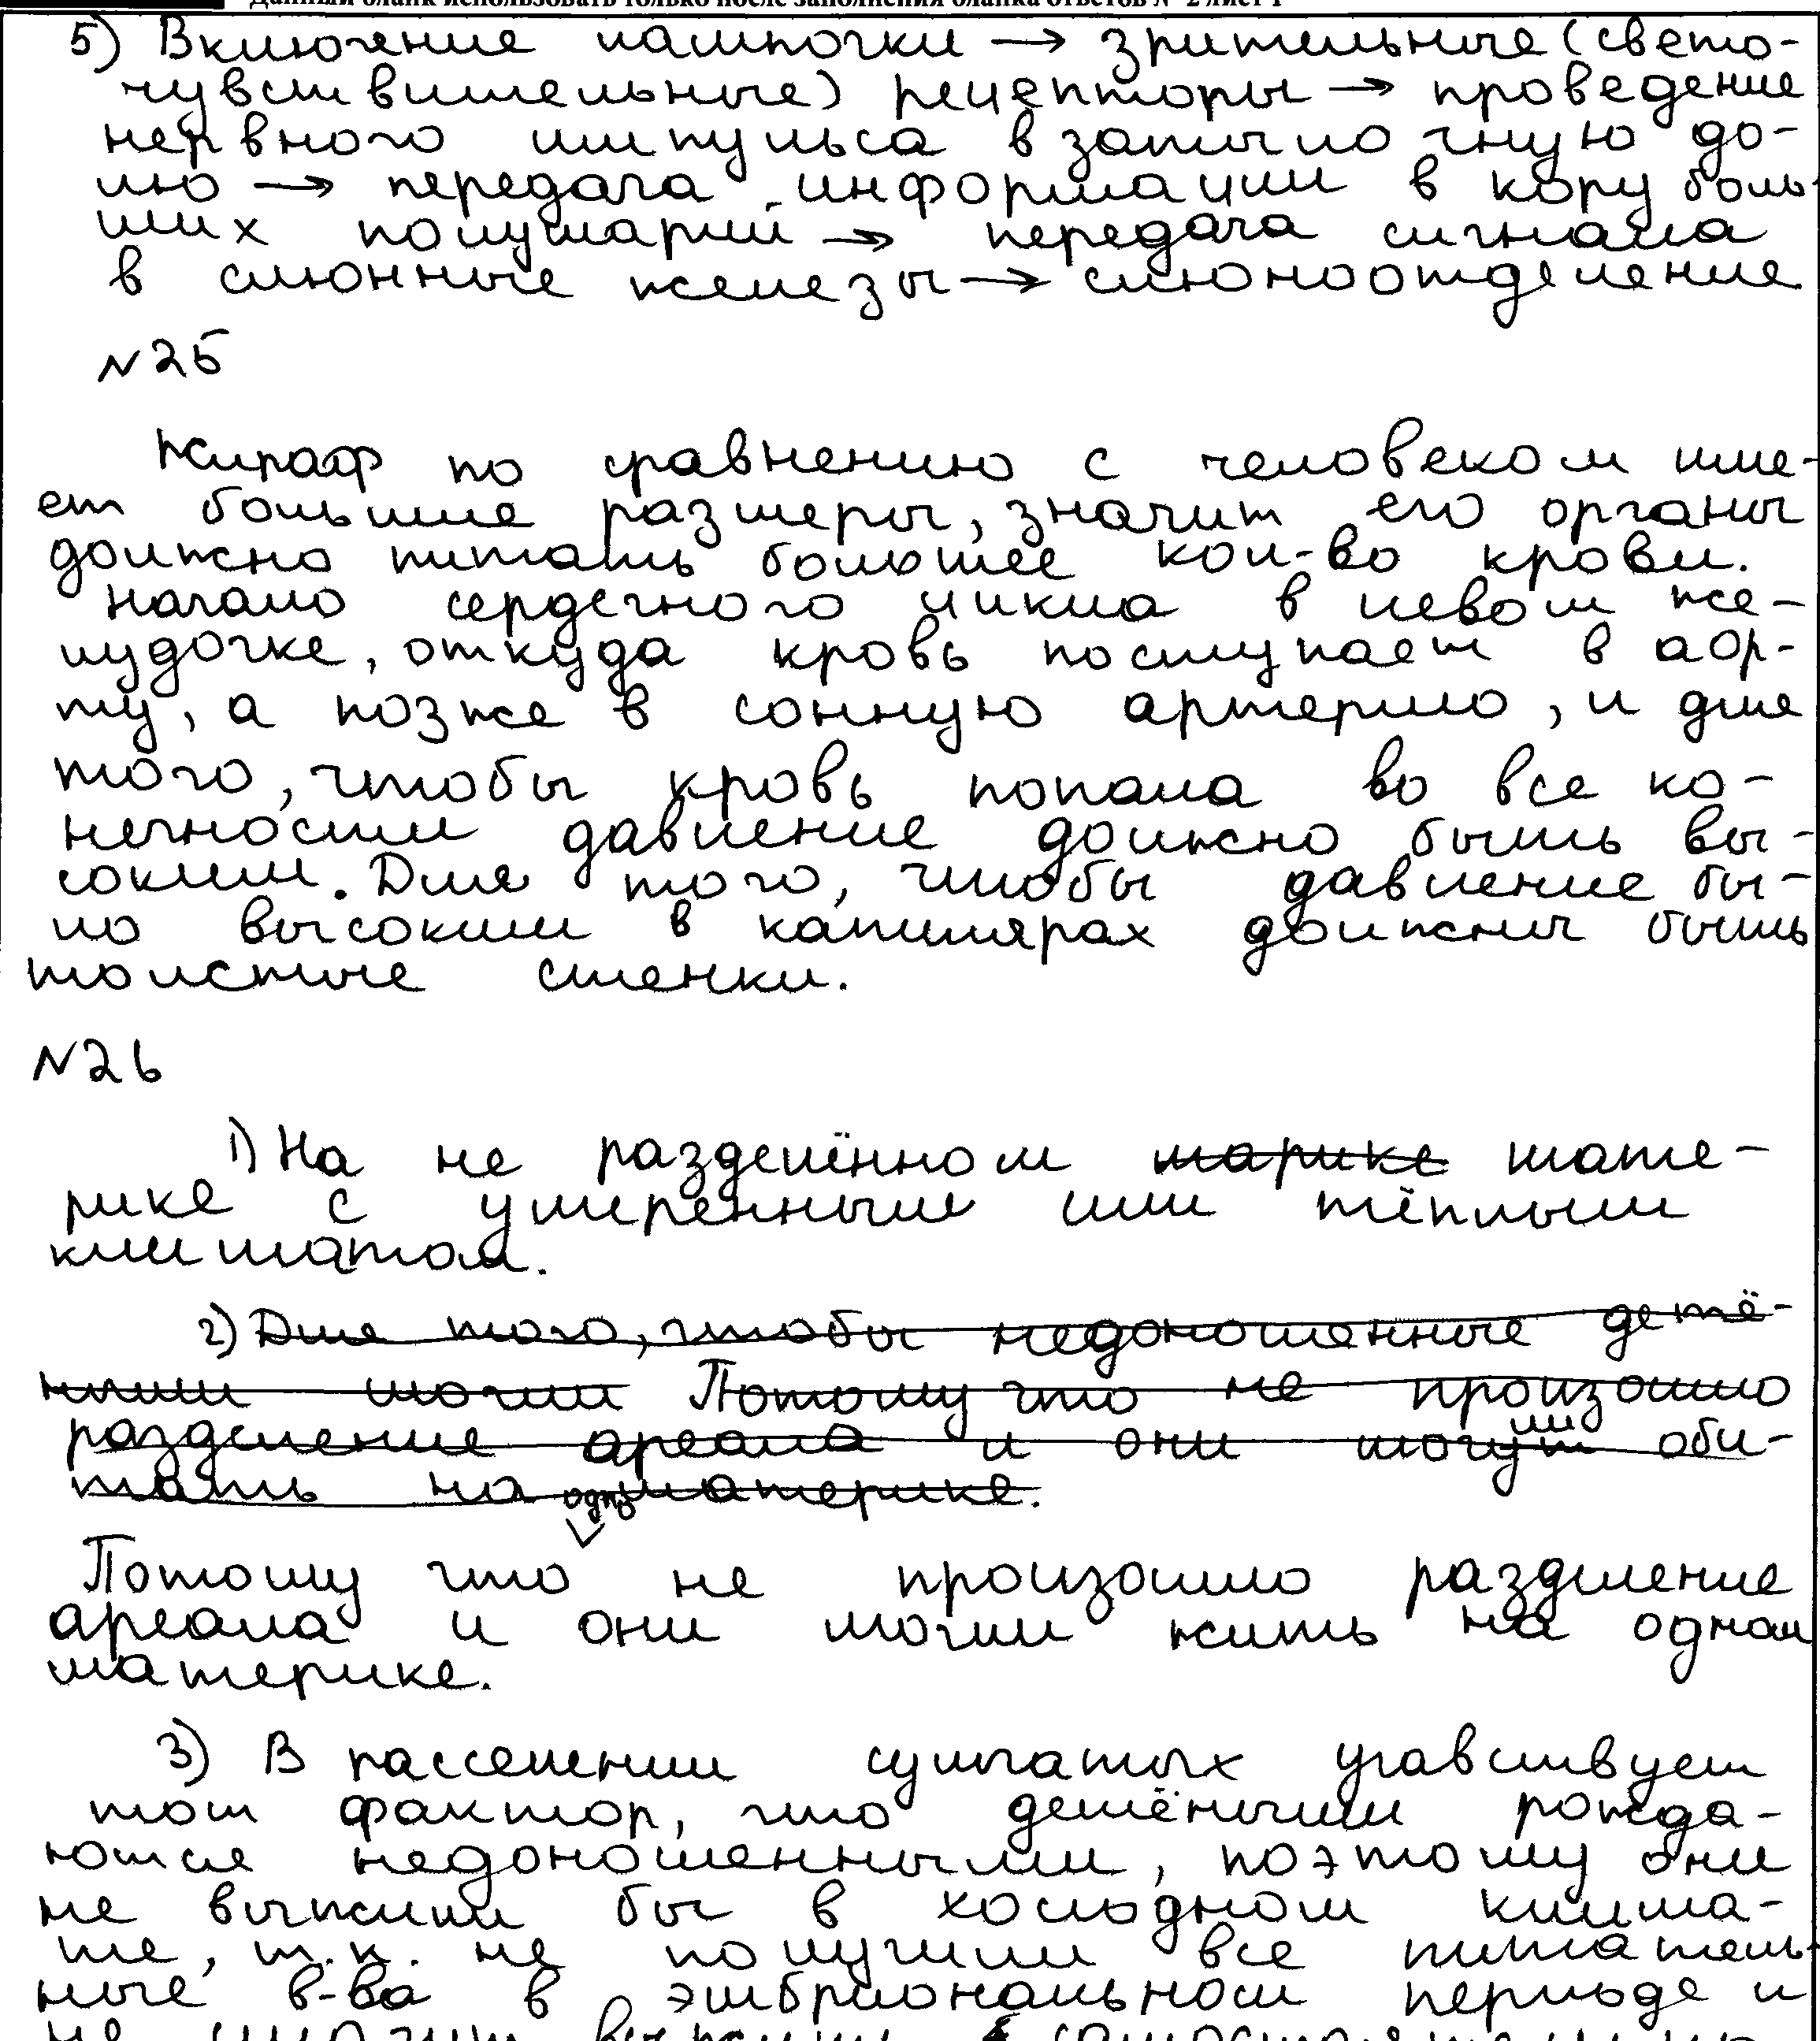 Данный бланк использовать только после заполнения бланка ответов № 2 лист 1
5) Включение лампочки → зрительные (свето-
чувствительные) рецепторы → проведение
нервного импульса в затылочную до-
лю → передача информации в кору боль-
ших полушарий → передача сигнала
в слюнные железы → слюноотделение
№25
Жираф по сравнению с человеком име-
ет большие размеры, значит его органы
должно питать большее кол-во крови.
Начало сердечного цикла в левом же-
лудочке, откуда кровь поступает в аор-
ту, а позже в сонную артерию, и для
того, чтобы кровь попала во все ко-
нечности давление должно быть вы-
соким. Для того, чтобы давление бы-
ло высоким в капиллярах должны быть
толстые стенки.
№26
1) На не разделённом марике мате-
рике с умеренным или тёплым
климатом.
2) Для того, чтобы недоношенные детё-
ныши могли Потому что не произошло
разделение ареала и они могли оби-
тать на материке.
Потому что не произошло разделение
ареала и они могли жить на одном
материке.
3) В расселении сумчатых учавствует
тот фактор, что детёныши рожда-
ются недоношенными, поэтому они
не выжили бы в холодном клима-
те, т.к. не получили все питатель-
ные в-ва в эмбриональном периоде и
не